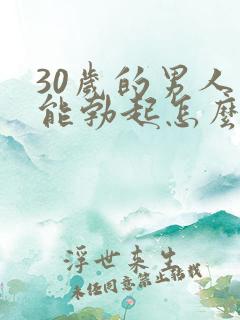 30歲的男人
能勃起怎麼
浮世來生
未經同意禁止轉載